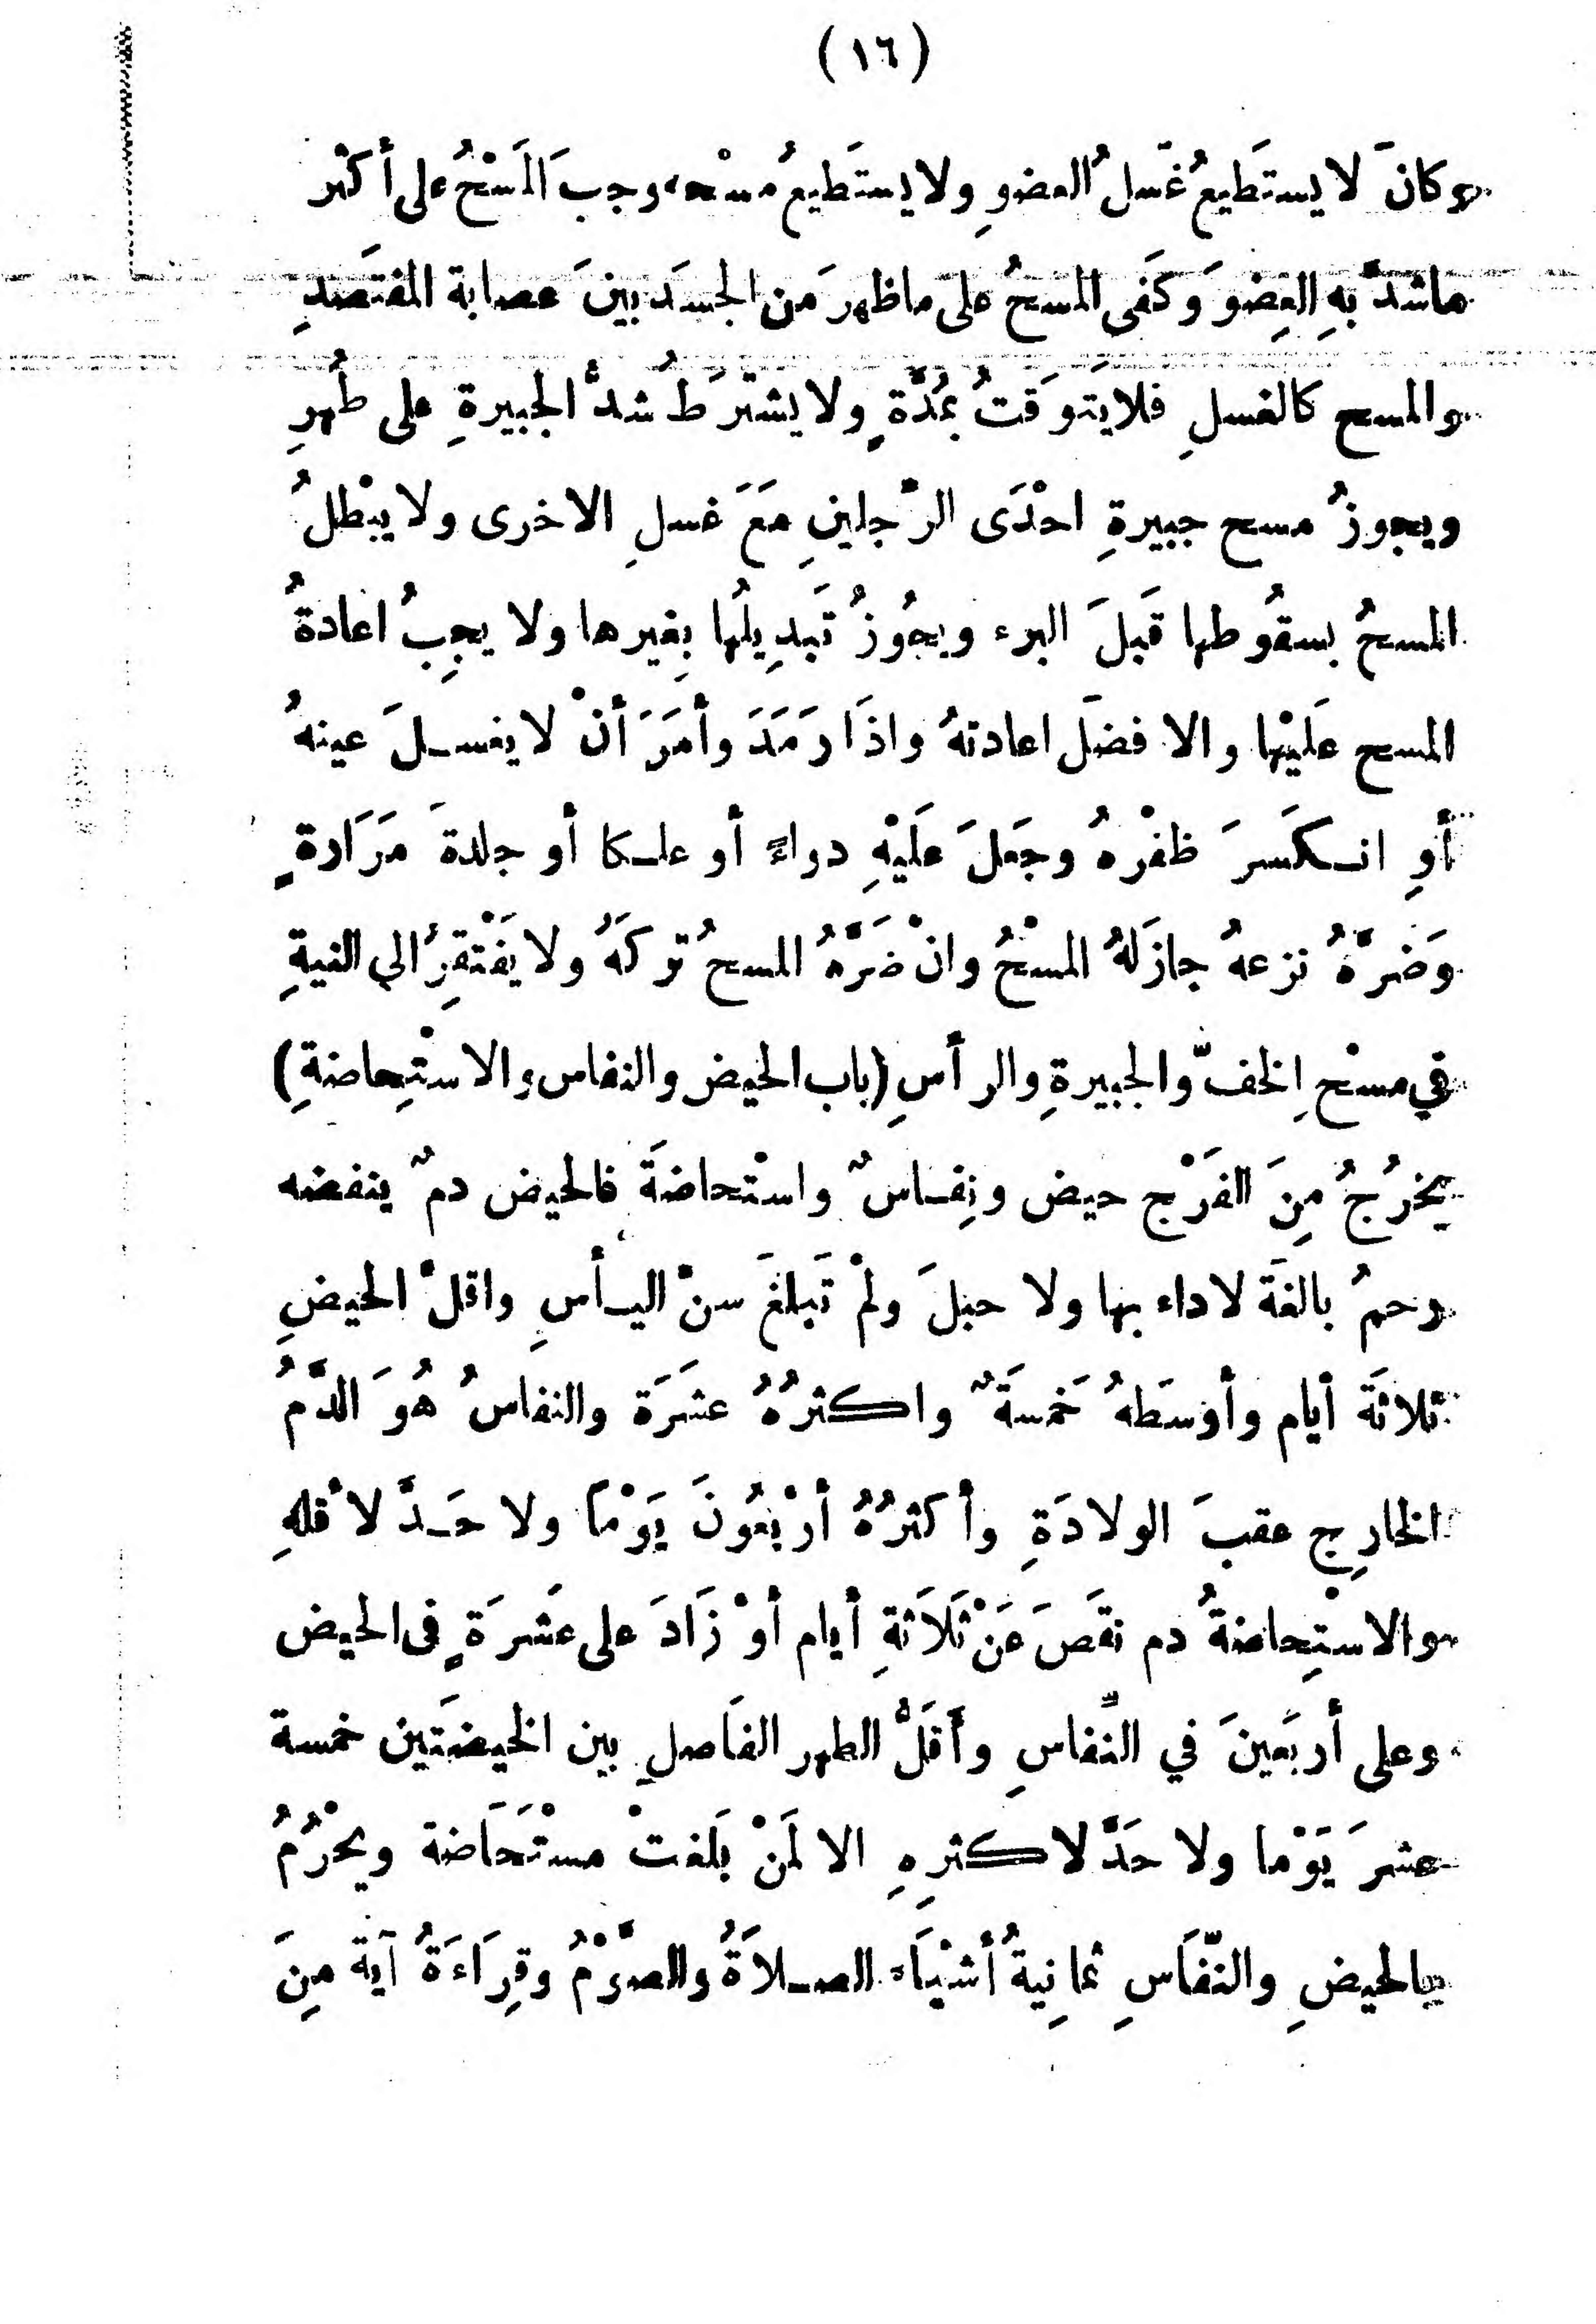 (١٦)
وكانَ لا يستَطيعُ غَسلُ العضوِ ولا يستَطيعُ مسْحه وجبَ المَسْحُ على أكثر
ماشدَّ بهِ العِضوَ وكَفى المسحُ على ماظهرَ مَن الجسَد بينَ عصابة المفتَصدِ
والمسح كالغسلِ فلايَتَوَقتُ بمُدَّةٍ ولا يشترَطُ شدُّ الجبيرةِ على طُهرِ
ويجوزُ مسح جبيرةِ احْدَى الرّجلينِ مَعَ غسلِ الاخرى ولا يبْطلُ
المسحُ بسقُوطها قَبلَ البرء ويجُوزُ تَبدِيلُها بِغيرها ولا يجِبُ اعادةُ
المسح عَليْها والا فضَل اعادتهُ واذَا رَمَدَ وأمَرَ أنْ لا يغسـلَ عينهُ
أوِ انـكَسرَ ظفْرهُ وجَعلَ عَلَيْهِ دواءً أو علـكا أو جلدةَ مَرَارةٍ
وَضرَّهُ نزعهُ جازَلهُ المسْحُ وانْ ضَرَّهُ المسحُ تركهُ ولا يَفْتقِرُ الي النيةِ
في مسْح اِلخفّ والجبيرةِ والرأسِ (باب الحيض والنفاس والاستِحاضةِ)
يخرُجُ مِنَ الفَرْج حيض ونِفـاسٌ واستْحاضةَ فالحيض دمٌ ينفضه
رحمُ بالغَة لاداء بها ولا حبلَ ولمْ تَبلغَ سنّ اليـأسِ واقلّ الحيضِ
ثلاثَة أيام وأوسَطهُ خَمسَةٌ واكثرُهُ عشرَة والنفاسُ هُوَ الدَّمُ
الخارِج عقبَ الولادَةِ وأكثرُهُ أرْبعُونَ يَوْماً ولا حَـدَّ لأقلهِ
والاستِحاضةُ دم نقَصَ عَنْ ثَلاَثةِ أيام أوْ زَادَ على عَشرَةٍ فى الحيض
وعلى أربَعينَ في النَّفاسِ وأقَلُّ الطهر الفَاصلِ بين الحيضَتين خمسة
عشرَ يَوْما ولا حَدَّ لاكثرِهِ الا لمَنْ بَلغتْ مسْتَحَاضة ويحْرُمُ
بالحيضِ والنّفَاسِ ثمانِيةُ أشْيَاء الصـلاَةُ والصَّوْمُ وقِرَاءَةُ آيَة مِنَ